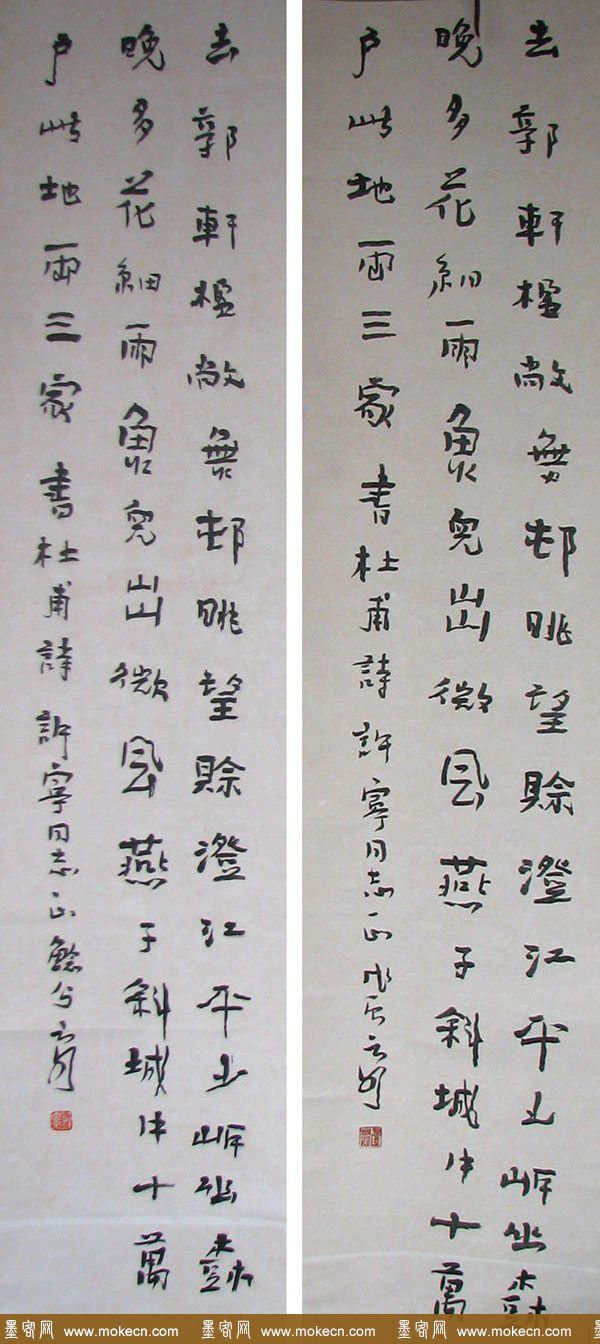 去郭軒楹敞無邨眺望賒澄江平少岸幽樹
晚多花細雨魚兒出微風燕子斜城中十萬
戶此地兩三家書杜甫詩許寧同志正
去郭軒楹敞無邨眺望賒澄江平少岸幽樹
晚多花細雨魚兒出微風燕子斜城中十萬
戶此地兩三家書杜甫詩許寧同志正
墨客网 www.mokecn.com 墨客网 www.mokecn.com 墨客网 www.mokecn.com 墨客网 www.mokecn.com 墨客